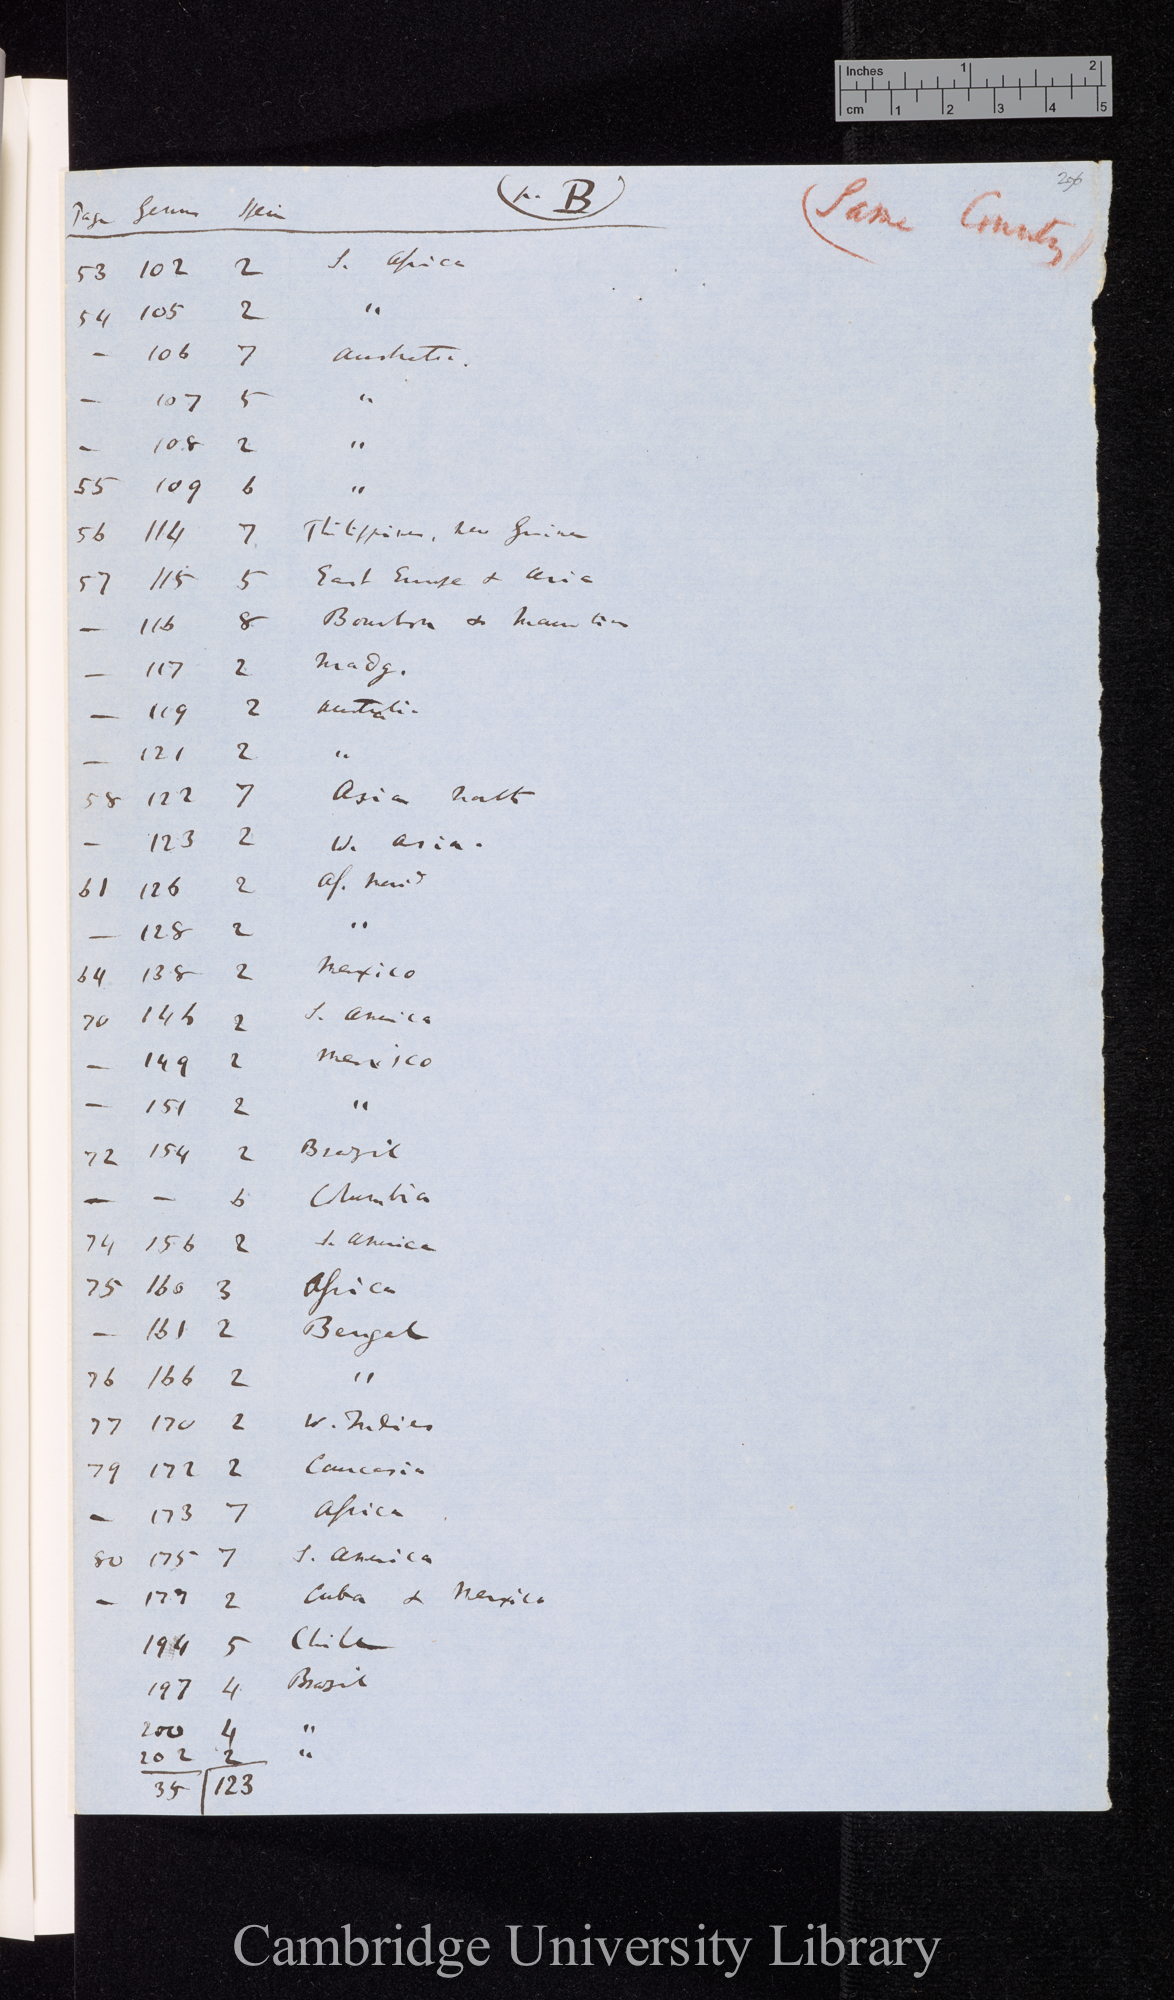 Inches 1 2
cm 1 2 3 4 5
206
(p. B)
(Same Country)
Page Genus Spein
53 102 2 S. Africa
54 105 2 "
– 106 7 Australia.
– 107 5 "
– 108 2 "
55 109 6 "
56 114 7 Philippines, New Guinea
57 115 5 East Europe & Asia
– 116 8 Bourbon & Mauritius
– 117 2 Madg.
– 119 2 Australia
– 121 2 "
58 122 7 Asia North
– 123 2 W. Asia.
61 126 2 Af. Merid
– 128 2 "
64 138 2 Mexico
70 146 2 S. America
– 149 2 Mexico
– 151 2 "
72 154 2 Brazil
– – 6 Columbia
74 156 2 S. America
75 160 3 Africa
– 161 2 Bengal
76 166 2 "
77 170 2 W. Indies
79 172 2 Caucasia
– 173 7 Africa
80 175 7 S. America
– 177 2 Cuba & Mexico
194 5 Chile
197 4 Brazil
200 4 "
202 2 "
35 123
Cambridge University Library